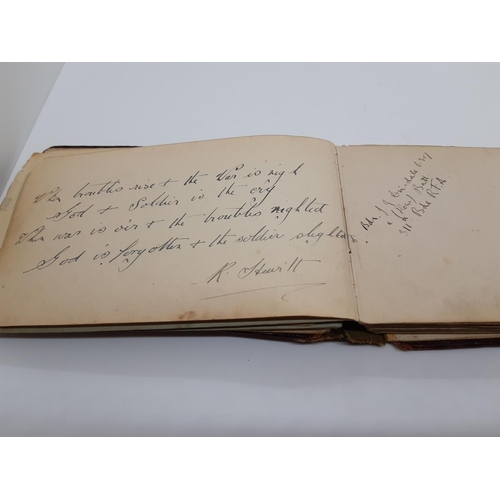 When troubles rise & the War is nigh
God & Soldier is the cry
When war is o'er & the troubles righted
God is forgotten & the soldier slighted
R. Hewitt
Bdr J J
Batt
Bde R.F.A